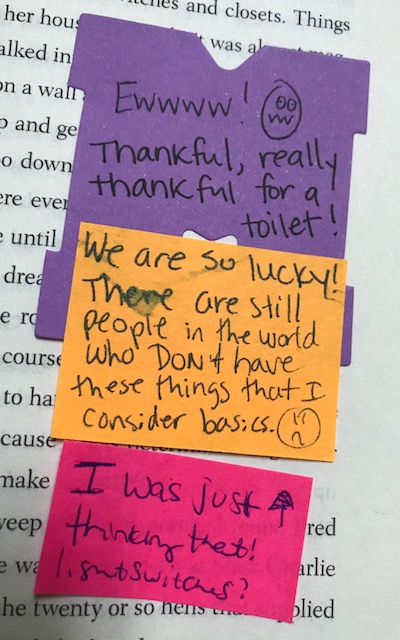 her hous
itches and closets. Things
alked in
t was al
on a wall
p and ge
o down
ere ever
e until
drea
e ro
course
to ha
cause
make
weep
red
e wa
Charlie
the twenty or so hens that supplied
Ewwww!
Thankful, really
thankful for a
toilet!
We are so lucky!
There are still
people in the world
who DON't have
these things that I
consider basics.
I was just
thinking that!
Lightswitches?